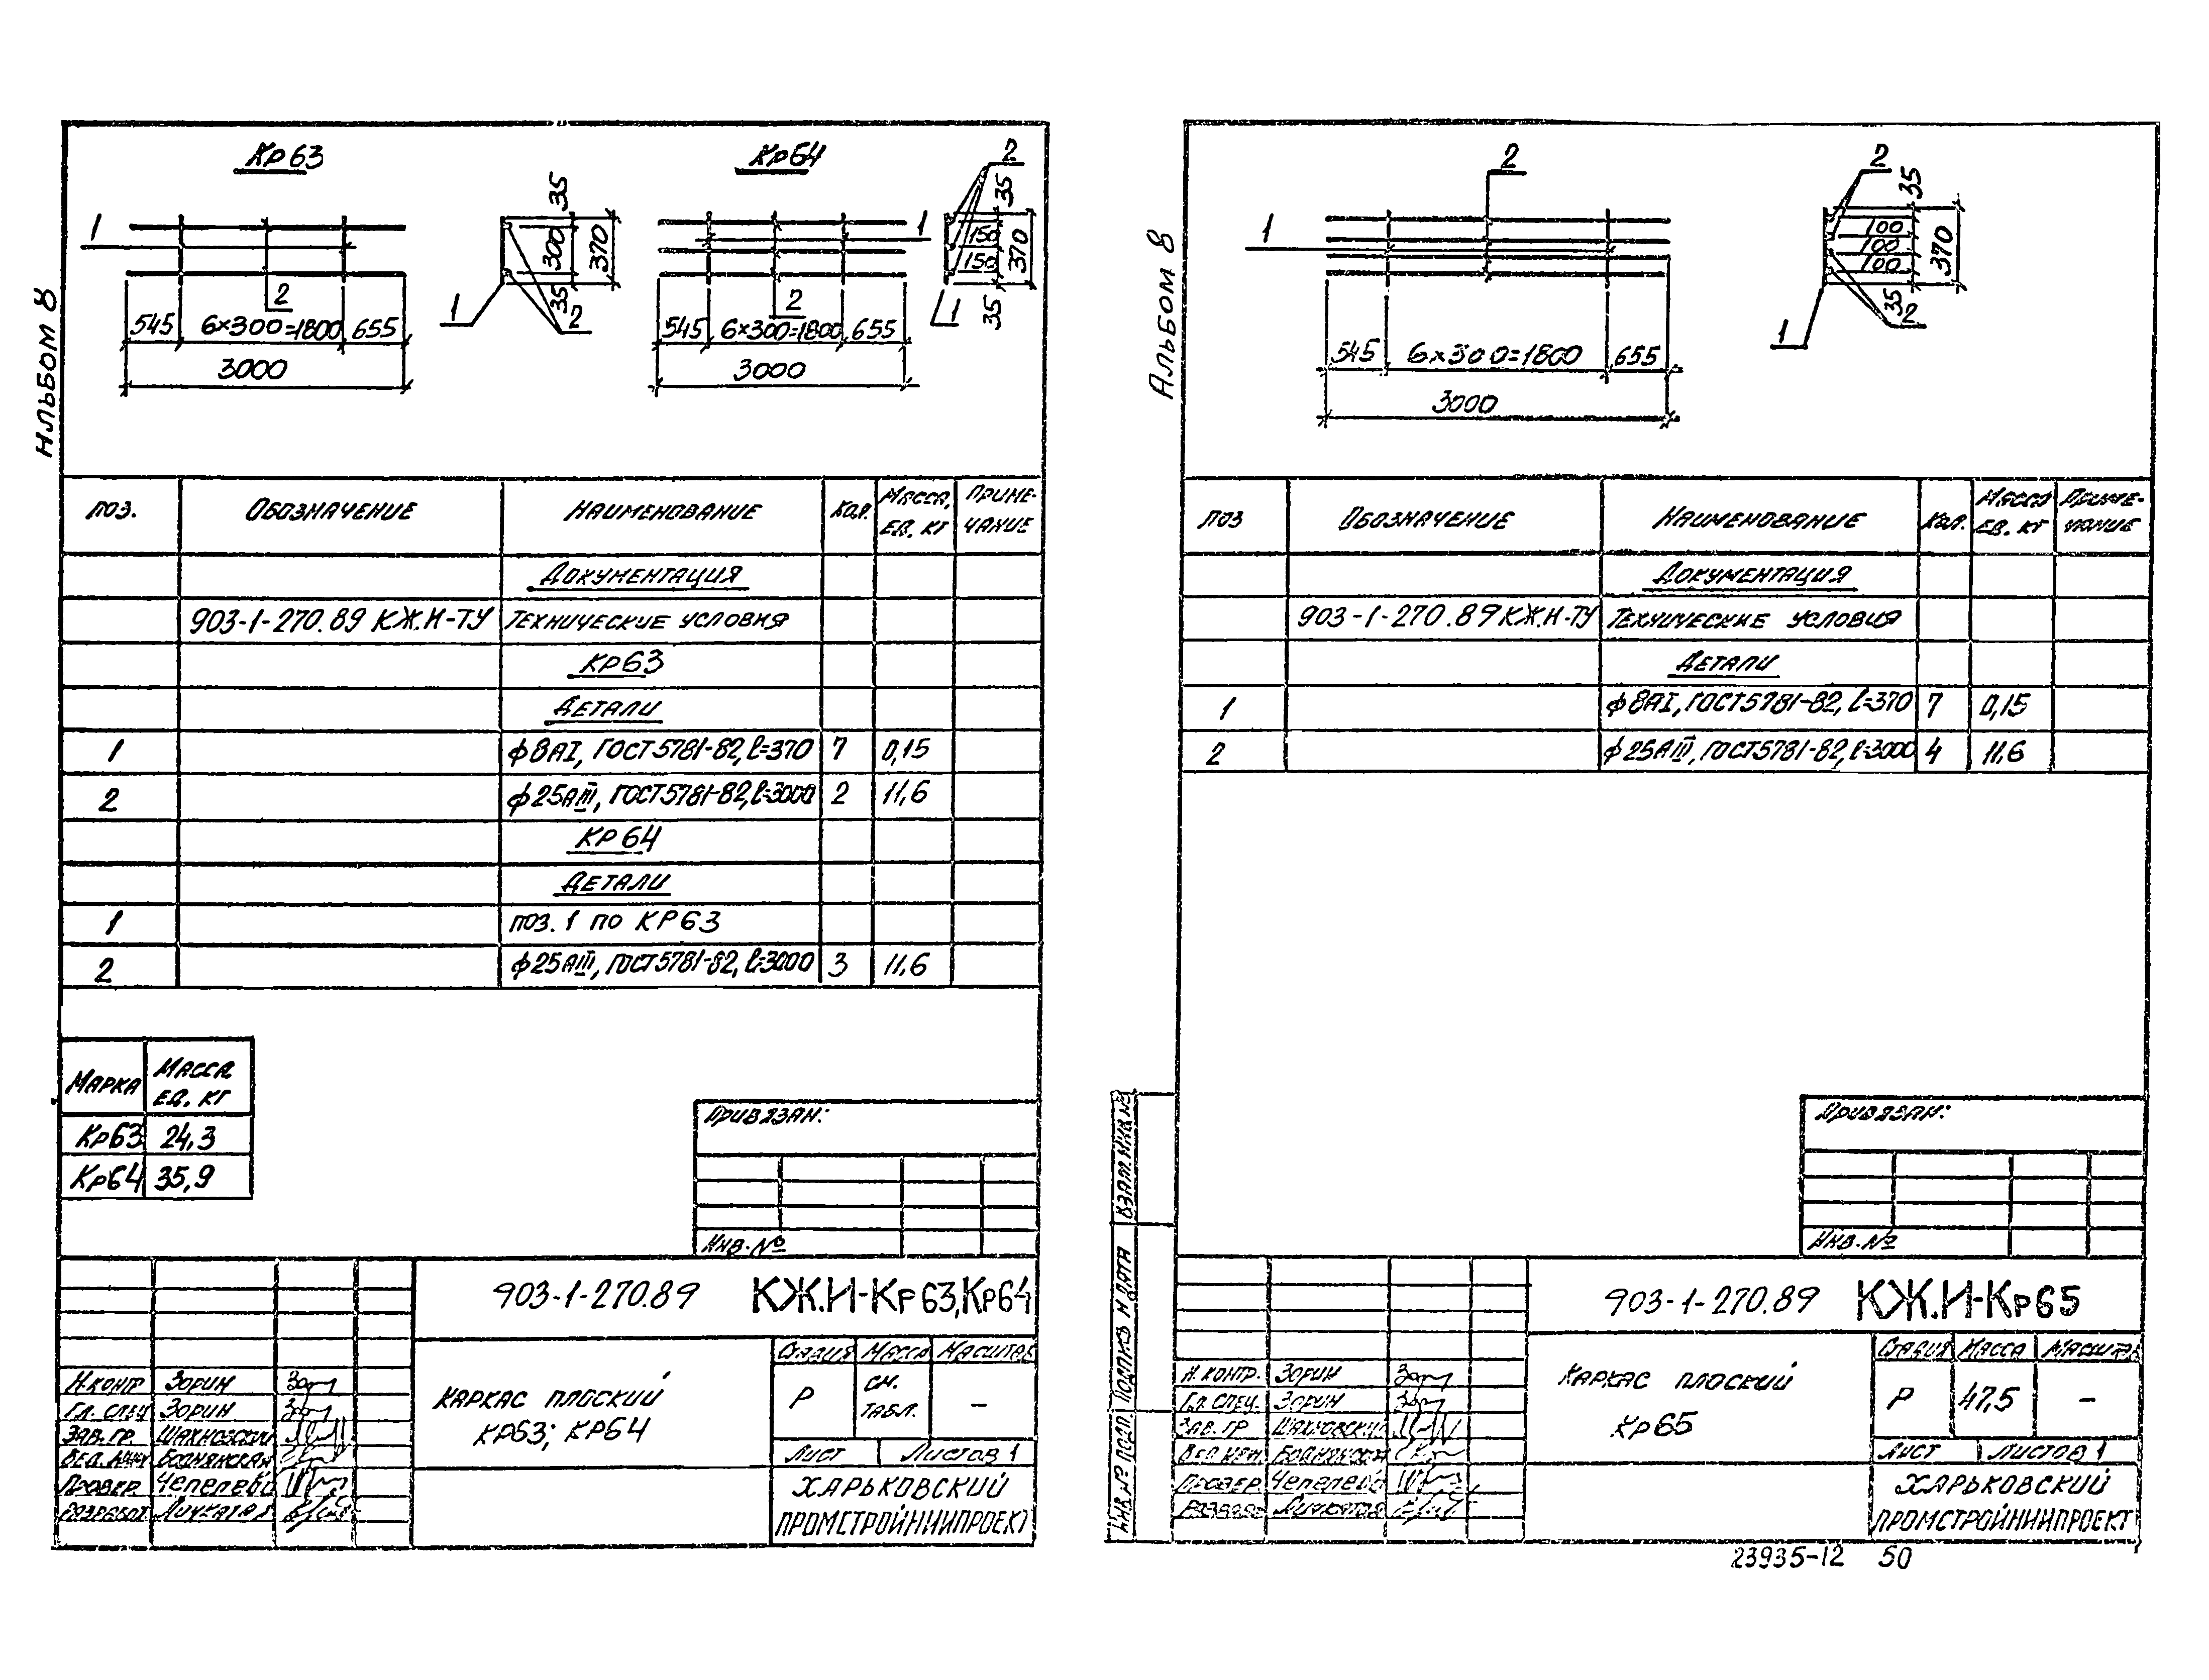 Альбом 8
Кр63
Кр64
1
2
545 6×300=1800 655
3000
35
300
35
370
1
2
2
1
545 6×300=1800 655
3000
2
35
150
150
35
370
1
ПОЗ. ОБОЗНАЧЕНИЕ НАИМЕНОВАНИЕ КОЛ. МАССА, ЕД. КГ ПРИМЕ-ЧАНИЕ
ДОКУМЕНТАЦИЯ
903-1-270.89 КЖ.И-ТУ ТЕХНИЧЕСКИЕ УСЛОВИЯ
КР63
ДЕТАЛИ
1 ф8АI, ГОСТ5781-82, l=370 7 0,15
2 ф25АIII, ГОСТ5781-82, l=3000 2 11,6
КР64
ДЕТАЛИ
1 ПОЗ. 1 ПО КР63
2 ф25АIII, ГОСТ5781-82, l=3000 3 11,6
МАРКА МАССА ЕД. КГ
Кр63 24,3
Кр64 35,9
ПРИВЯЗАН:
ИНВ. №
903-1-270.89 КЖ.И-Кр63,Кр64
Н.КОНТР ЗОРИН
ГЛ. СПЕЦ ЗОРИН
ЗАВ. ГР. ШАХНОВСКИЙ
ВЕД. ИНЖ БОДНЯНСКАЯ
ПРОВЕР. ЧЕПЕЛЕВА
РАЗРАБОТ
КАРКАС ПЛОСКИЙ
КР63; КР64
СТАДИЯ МАССА МАСШТАБ
Р СМ. ТАБЛ. –
ЛИСТ ЛИСТОВ 1
ХАРЬКОВСКИЙ
ПРОМСТРОЙНИИПРОЕКТ
Альбом 8
2
1
545 6×300=1800 655
3000
2
35
100
100
100
35
370
2
1
ПОЗ ОБОЗНАЧЕНИЕ НАИМЕНОВАНИЕ КОЛ. МАССА ЕД. КГ ПРИМЕ-ЧАНИЕ
ДОКУМЕНТАЦИЯ
903-1-270.89 КЖ.И-ТУ ТЕХНИЧЕСКИЕ УСЛОВИЯ
ДЕТАЛИ
1 ф8АI, ГОСТ5781-82, l=370 7 0,15
2 ф25АIII, ГОСТ5781-82, l=3000 4 11,6
ПРИВЯЗАН:
ИНВ. №
ВЗАМ. ИНВ. №
ПОДПИСЬ И ДАТА
ИНВ. № ПОДЛ.
903-1-270.89 КЖ.И-Кр65
Н.КОНТР. ЗОРИН
ГЛ. СПЕЦ. ЗОРИН
ЗАВ. ГР ШАХНОВСКИЙ
ВЕД. ИНЖ. БОДНЯНСКАЯ
ПРОВЕР. ЧЕПЕЛЕВА
КАРКАС ПЛОСКИЙ
КР65
СТАДИЯ МАССА МАСШТАБ
Р 47,5 –
ЛИСТ ЛИСТОВ 1
ХАРЬКОВСКИЙ
ПРОМСТРОЙНИИПРОЕКТ
23935-12 50